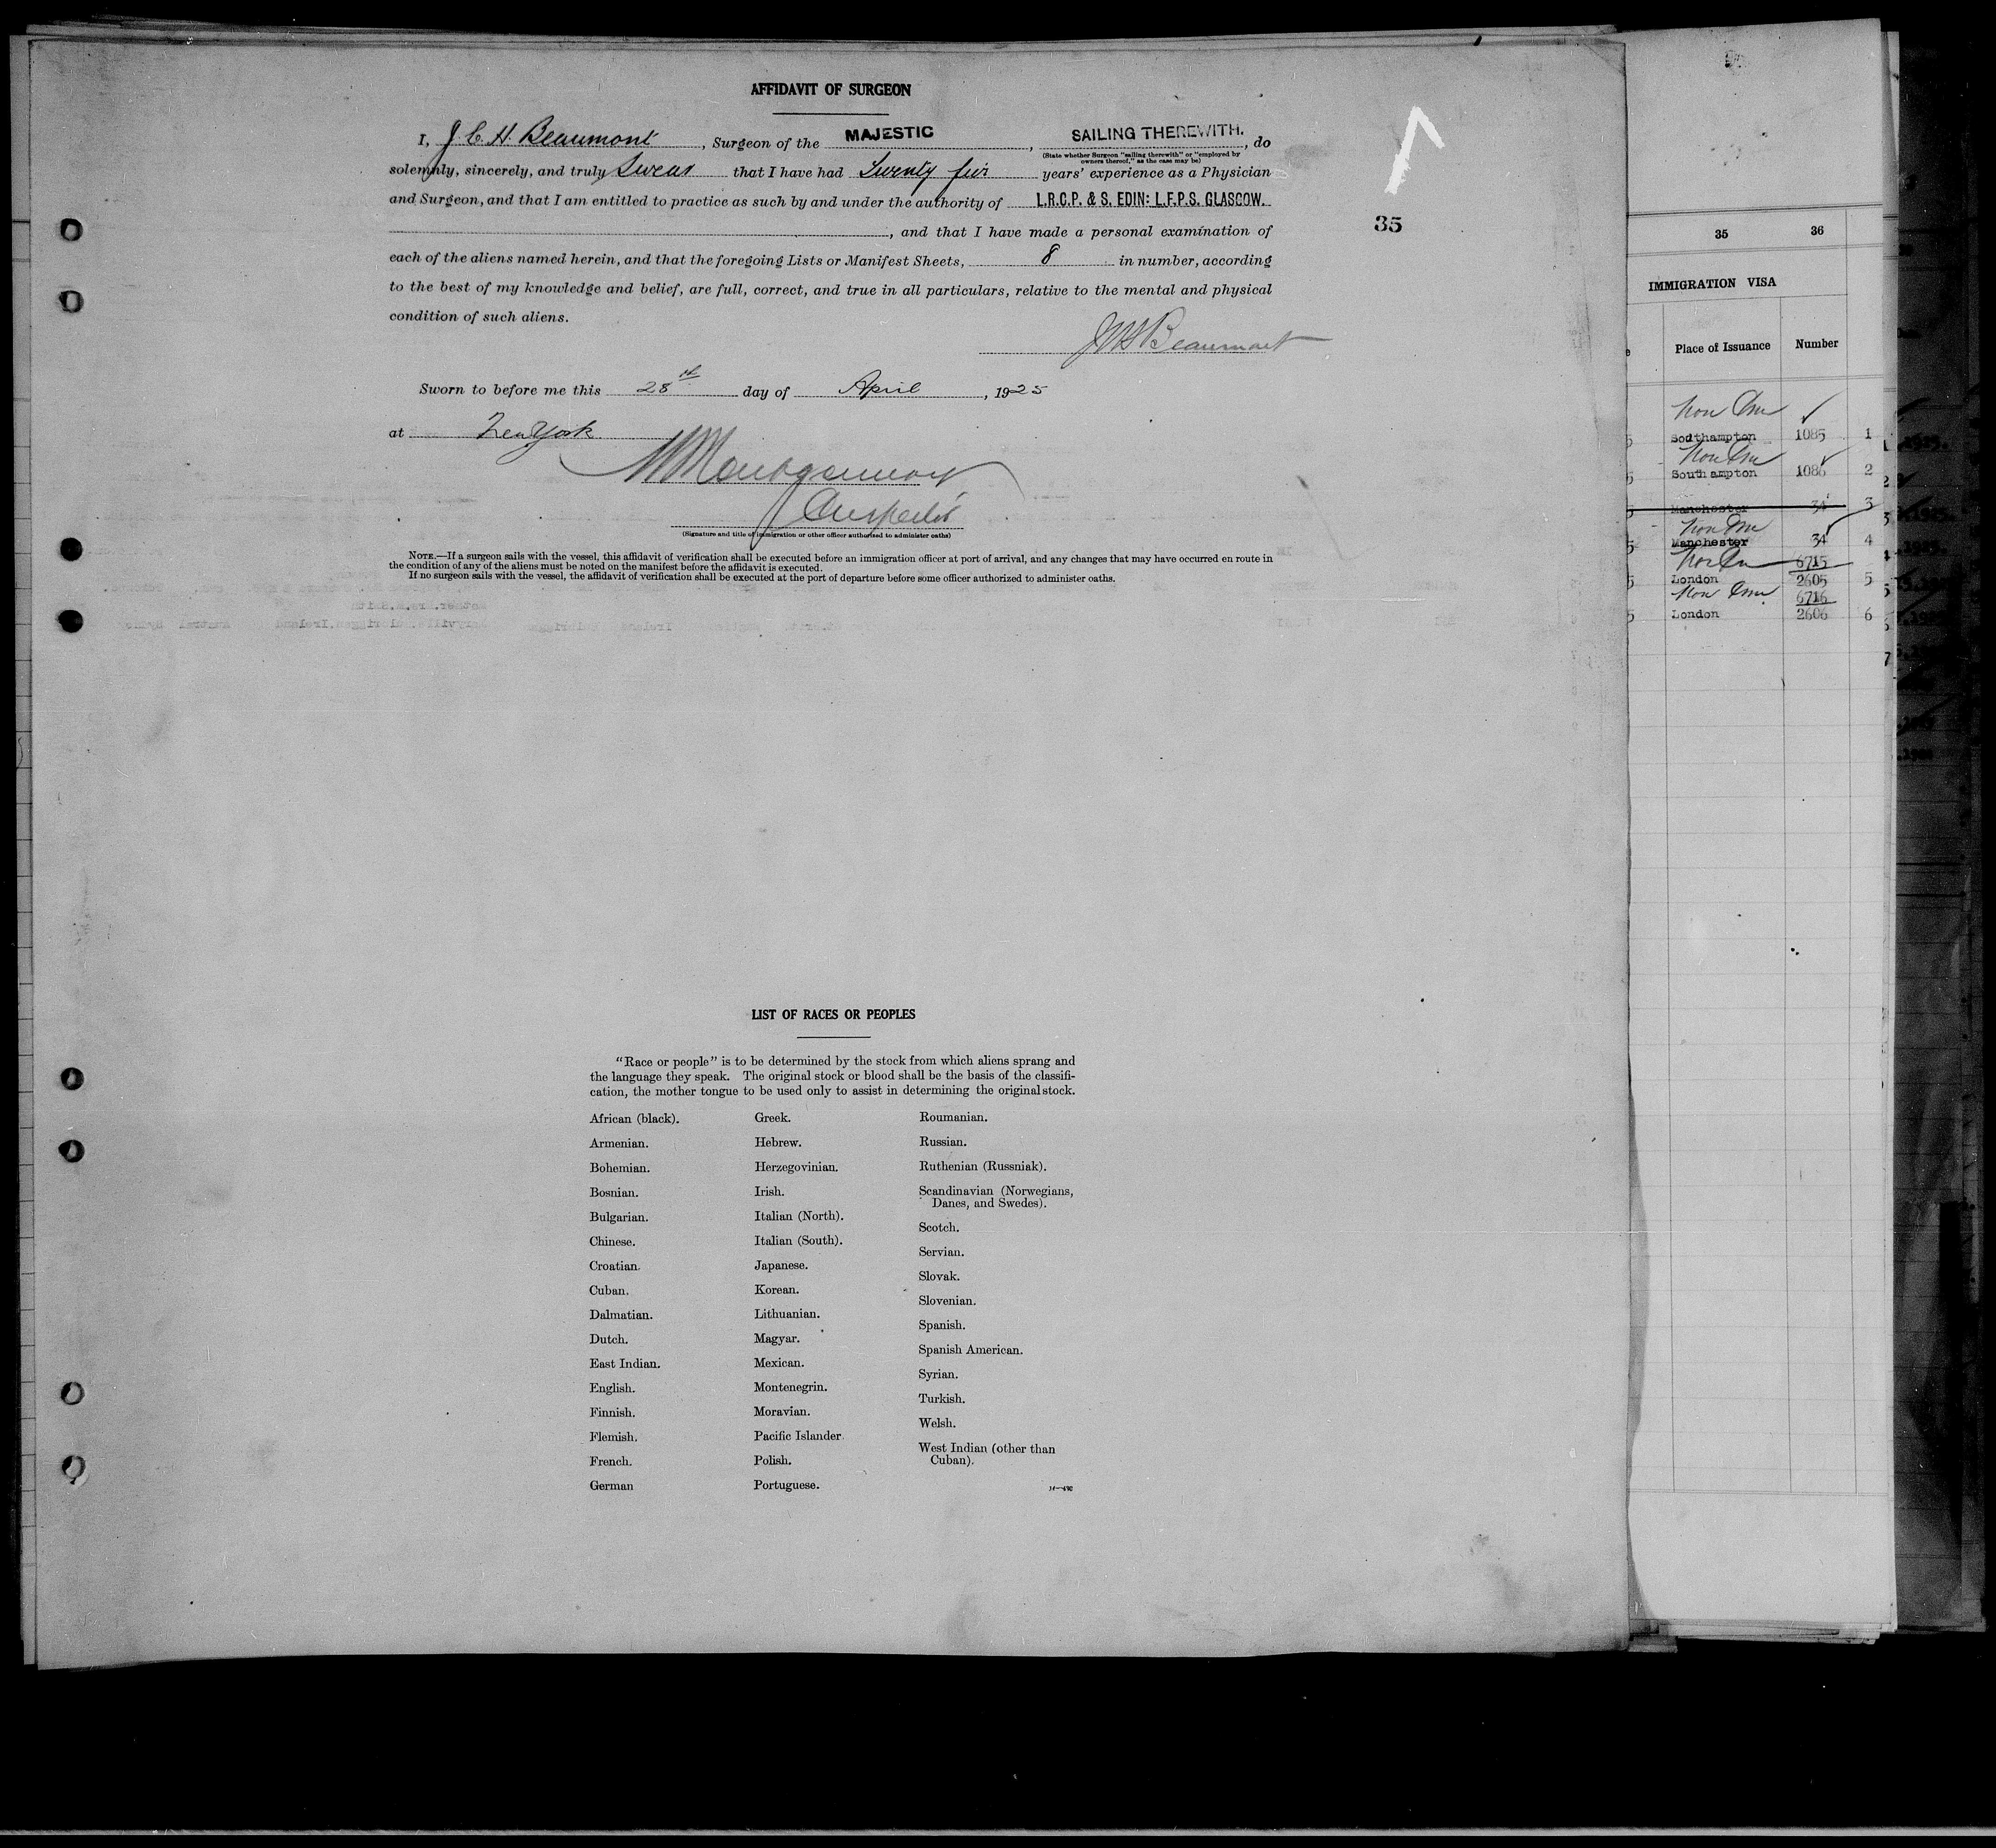 AFFIDAVIT OF SURGEON
I, J. C. H. Beaumont, Surgeon of the MAJESTIC, SAILING THEREWITH., do
(State whether Surgeon "sailing therewith" or "employed by
owners thereof," as the case may be)
solemnly, sincerely, and truly Swear that I have had Twenty five years' experience as a Physician
and Surgeon, and that I am entitled to practice as such by and under the authority of L.R.C.P. & S. EDIN: L.F.P.S. GLASGOW.
, and that I have made a personal examination of
each of the aliens named herein, and that the foregoing Lists or Manifest Sheets, 8 in number, according
to the best of my knowledge and belief, are full, correct, and true in all particulars, relative to the mental and physical
condition of such aliens.
35
JCHBeaumont
Sworn to before me this 28th day of April, 1925
at New York
Inspector
(Signature and title of immigration or other officer authorized to administer oaths)
NOTE.—If a surgeon sails with the vessel, this affidavit of verification shall be executed before an immigration officer at port of arrival, and any changes that may have occurred en route in
the condition of any of the aliens must be noted on the manifest before the affidavit is executed.
If no surgeon sails with the vessel, the affidavit of verification shall be executed at the port of departure before some officer authorized to administer oaths.
LIST OF RACES OR PEOPLES
"Race or people" is to be determined by the stock from which aliens sprang and
the language they speak. The original stock or blood shall be the basis of the classifi-
cation, the mother tongue to be used only to assist in determining the original stock.
African (black).
Armenian.
Bohemian.
Bosnian.
Bulgarian.
Chinese.
Croatian.
Cuban.
Dalmatian.
Dutch.
East Indian.
English.
Finnish.
Flemish.
French.
German
Greek.
Hebrew.
Herzegovinian.
Irish.
Italian (North).
Italian (South).
Japanese.
Korean.
Lithuanian.
Magyar.
Mexican.
Montenegrin.
Moravian.
Pacific Islander.
Polish.
Portuguese.
Roumanian.
Russian.
Ruthenian (Russniak).
Scandinavian (Norwegians,
Danes, and Swedes).
Scotch.
Servian.
Slovak.
Slovenian.
Spanish.
Spanish American.
Syrian.
Turkish.
Welsh.
West Indian (other than
Cuban).
35 36
IMMIGRATION VISA
Place of Issuance Number
Southampton 1085 1
Southampton 1086 2
Manchester 34 3
Manchester 34 4
6715
London 2605 5
6716
London 2606 6